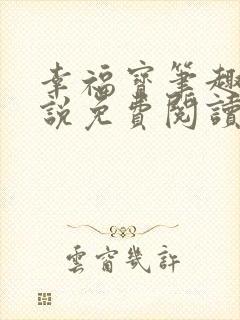 幸福寶筆趣
說免費閱讀
雲窗幾許